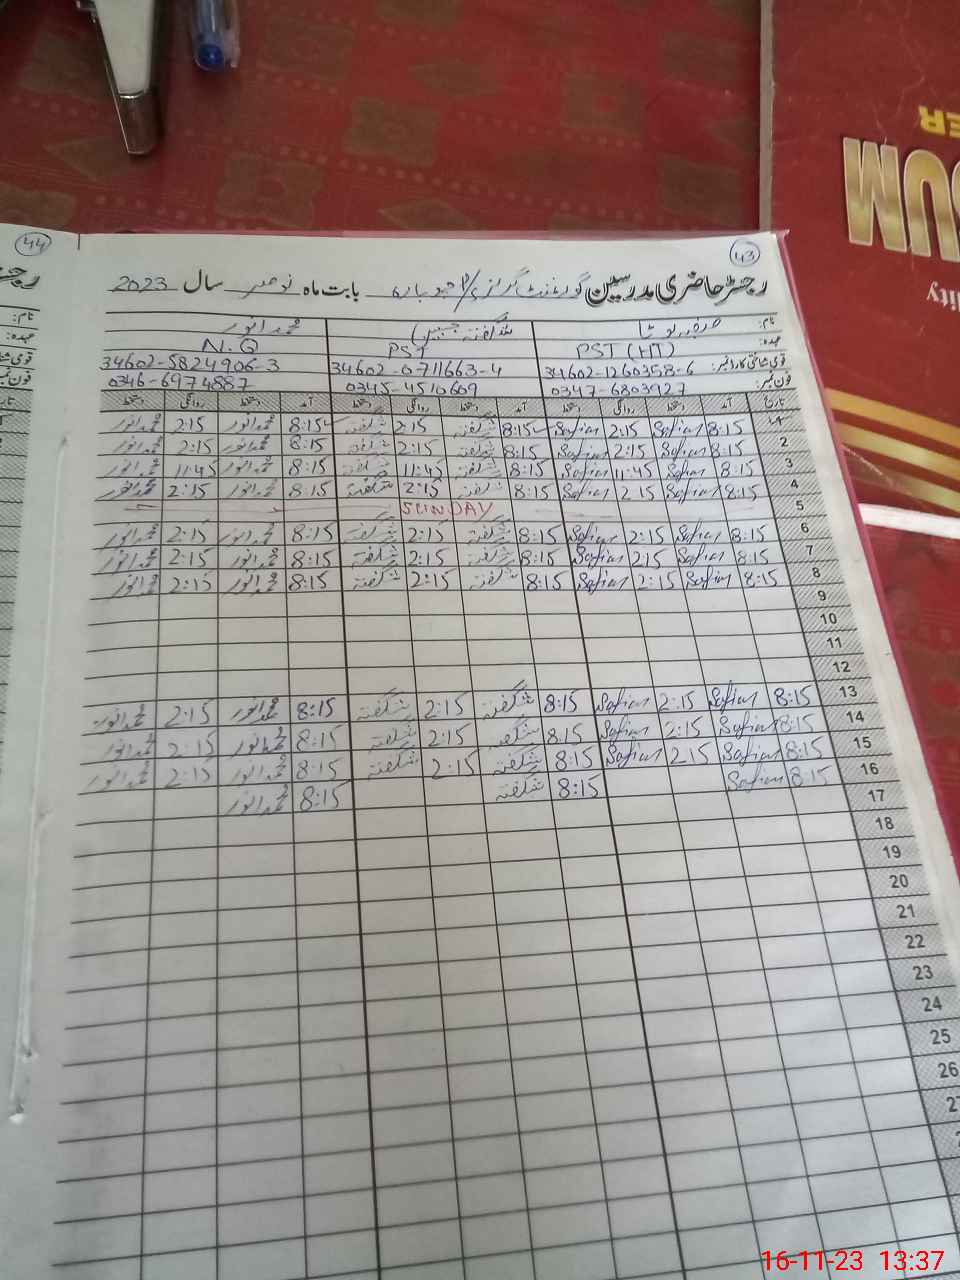 43
44
رجسٹر حاضری مدرسین گورنمنٹ گرلز بابت ماہ نومبر سال 2023
نام: صفیہ بوٹا شگفتہ جبیں محمد انور
عہدہ: PST (HT) PST N.Q
قومی شناختی کارڈ نمبر: 34602-1260358-6 34602-0711663-4 34602-5824906-3
فون نمبر: 0347-6803927 0345-4510609 0346-6974887
تاریخ آمد دستخط روانگی دستخط آمد دستخط روانگی دستخط آمد دستخط روانگی دستخط
1 8:15 Sofian 2:15 Sofian 8:15 شگفتہ 2:15 شگفتہ 8:15 محمد انور 2:15 محمد انور
2 8:15 Sofian 2:15 Sofian 8:15 شگفتہ 2:15 شگفتہ 8:15 محمد انور 2:15 محمد انور
3 8:15 Sofian 11:45 Sofian 8:15 شگفتہ 11:45 شگفتہ 8:15 محمد انور 11:45 محمد انور
4 8:15 Sofian 2:15 Sofian 8:15 شگفتہ 2:15 شگفتہ 8:15 محمد انور 2:15 محمد انور
5 SUNDAY
6 8:15 Sofian 2:15 Sofian 8:15 شگفتہ 2:15 شگفتہ 8:15 محمد انور 2:15 محمد انور
7 8:15 Sofian 2:15 Sofian 8:15 شگفتہ 2:15 شگفتہ 8:15 محمد انور 2:15 محمد انور
8 8:15 Sofian 2:15 Sofian 8:15 شگفتہ 2:15 شگفتہ 8:15 محمد انور 2:15 محمد انور
9
10
11
12
13 8:15 Sofian 2:15 Sofian 8:15 شگفتہ 2:15 شگفتہ 8:15 محمد انور 2:15 محمد انور
14 8:15 Sofian 2:15 Sofian 8:15 شگفتہ 2:15 شگفتہ 8:15 محمد انور 2:15 محمد انور
15 8:15 Sofian 2:15 Sofian 8:15 شگفتہ 2:15 شگفتہ 8:15 محمد انور 2:15 محمد انور
16 8:15 Sofian 8:15 شگفتہ 8:15 محمد انور
17
18
19
20
21
22
23
24
25
26
27
16-11-23 13:37